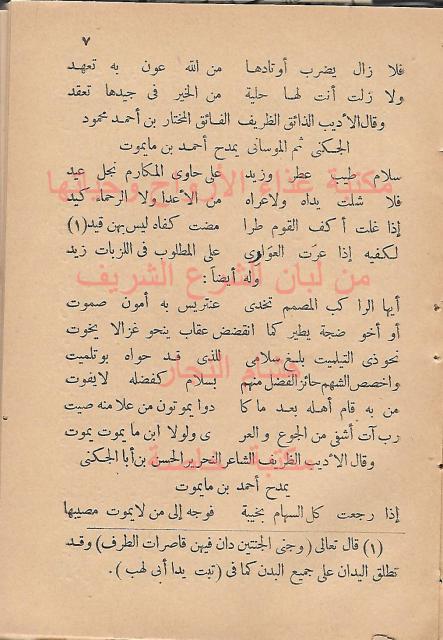 ٧
فلا زال يضرب أوتادها من الله عون به تعهد
ولا زلت أنت لها حلية من الخير فى جيدها تعقد
وقال الأديب الذائق الظريف الفائق المختار بن أحمد محمود
الجكنى ثم الموسانى يمدح أحمد بن مايموت
سلام طيب عطر وزيد على حاوى المكارم نجل عيد
فلا شلت يداه ولا عراه من الأعدا ولا الرحماء كيد
إذا غلت أكف القوم طرا مضت كفاه ليس بهن قيد (١)
لكفيه إذا عرت العوارى على المطلوب فى اللزبات زيد
وله أيضاً :
أيها الراكب المصمم تخدى عنتريس به أمون صموت
أو أخو ضجة يطير كما انقضض عقاب بنحو غزالا يخوت
نحو ذى التيلميت بليغ سلامى للذى قد حواه بوتلميت
واخصص الشهم حائز الفضل منهم بسلام كفضله لايفوت
من به قام أهله بعد ما كا دوا يموتون من علامنه صيت
رب آت أشفى من الجوع والعر ى ولولا ابن مايموت يموت
وقال الأديب الظريف الشاعر التحرير الحسن بن أبا الجكنى
يمدح أحمد بن مايموت
إذا رجعت كل السهام بخيبة فوجه إلى من لايموت مصيبها
(١) قال تعالى (وجنى الجنتين دان فيهن قاصرات الطرف) وقد
تطلق اليدان على جميع البدن كما فى (تبت يدا أبى لهب).
مكتبة غذاء الأرواح وحياتها
من لبان الشرع الشريف
هشام النجار
مكتبة